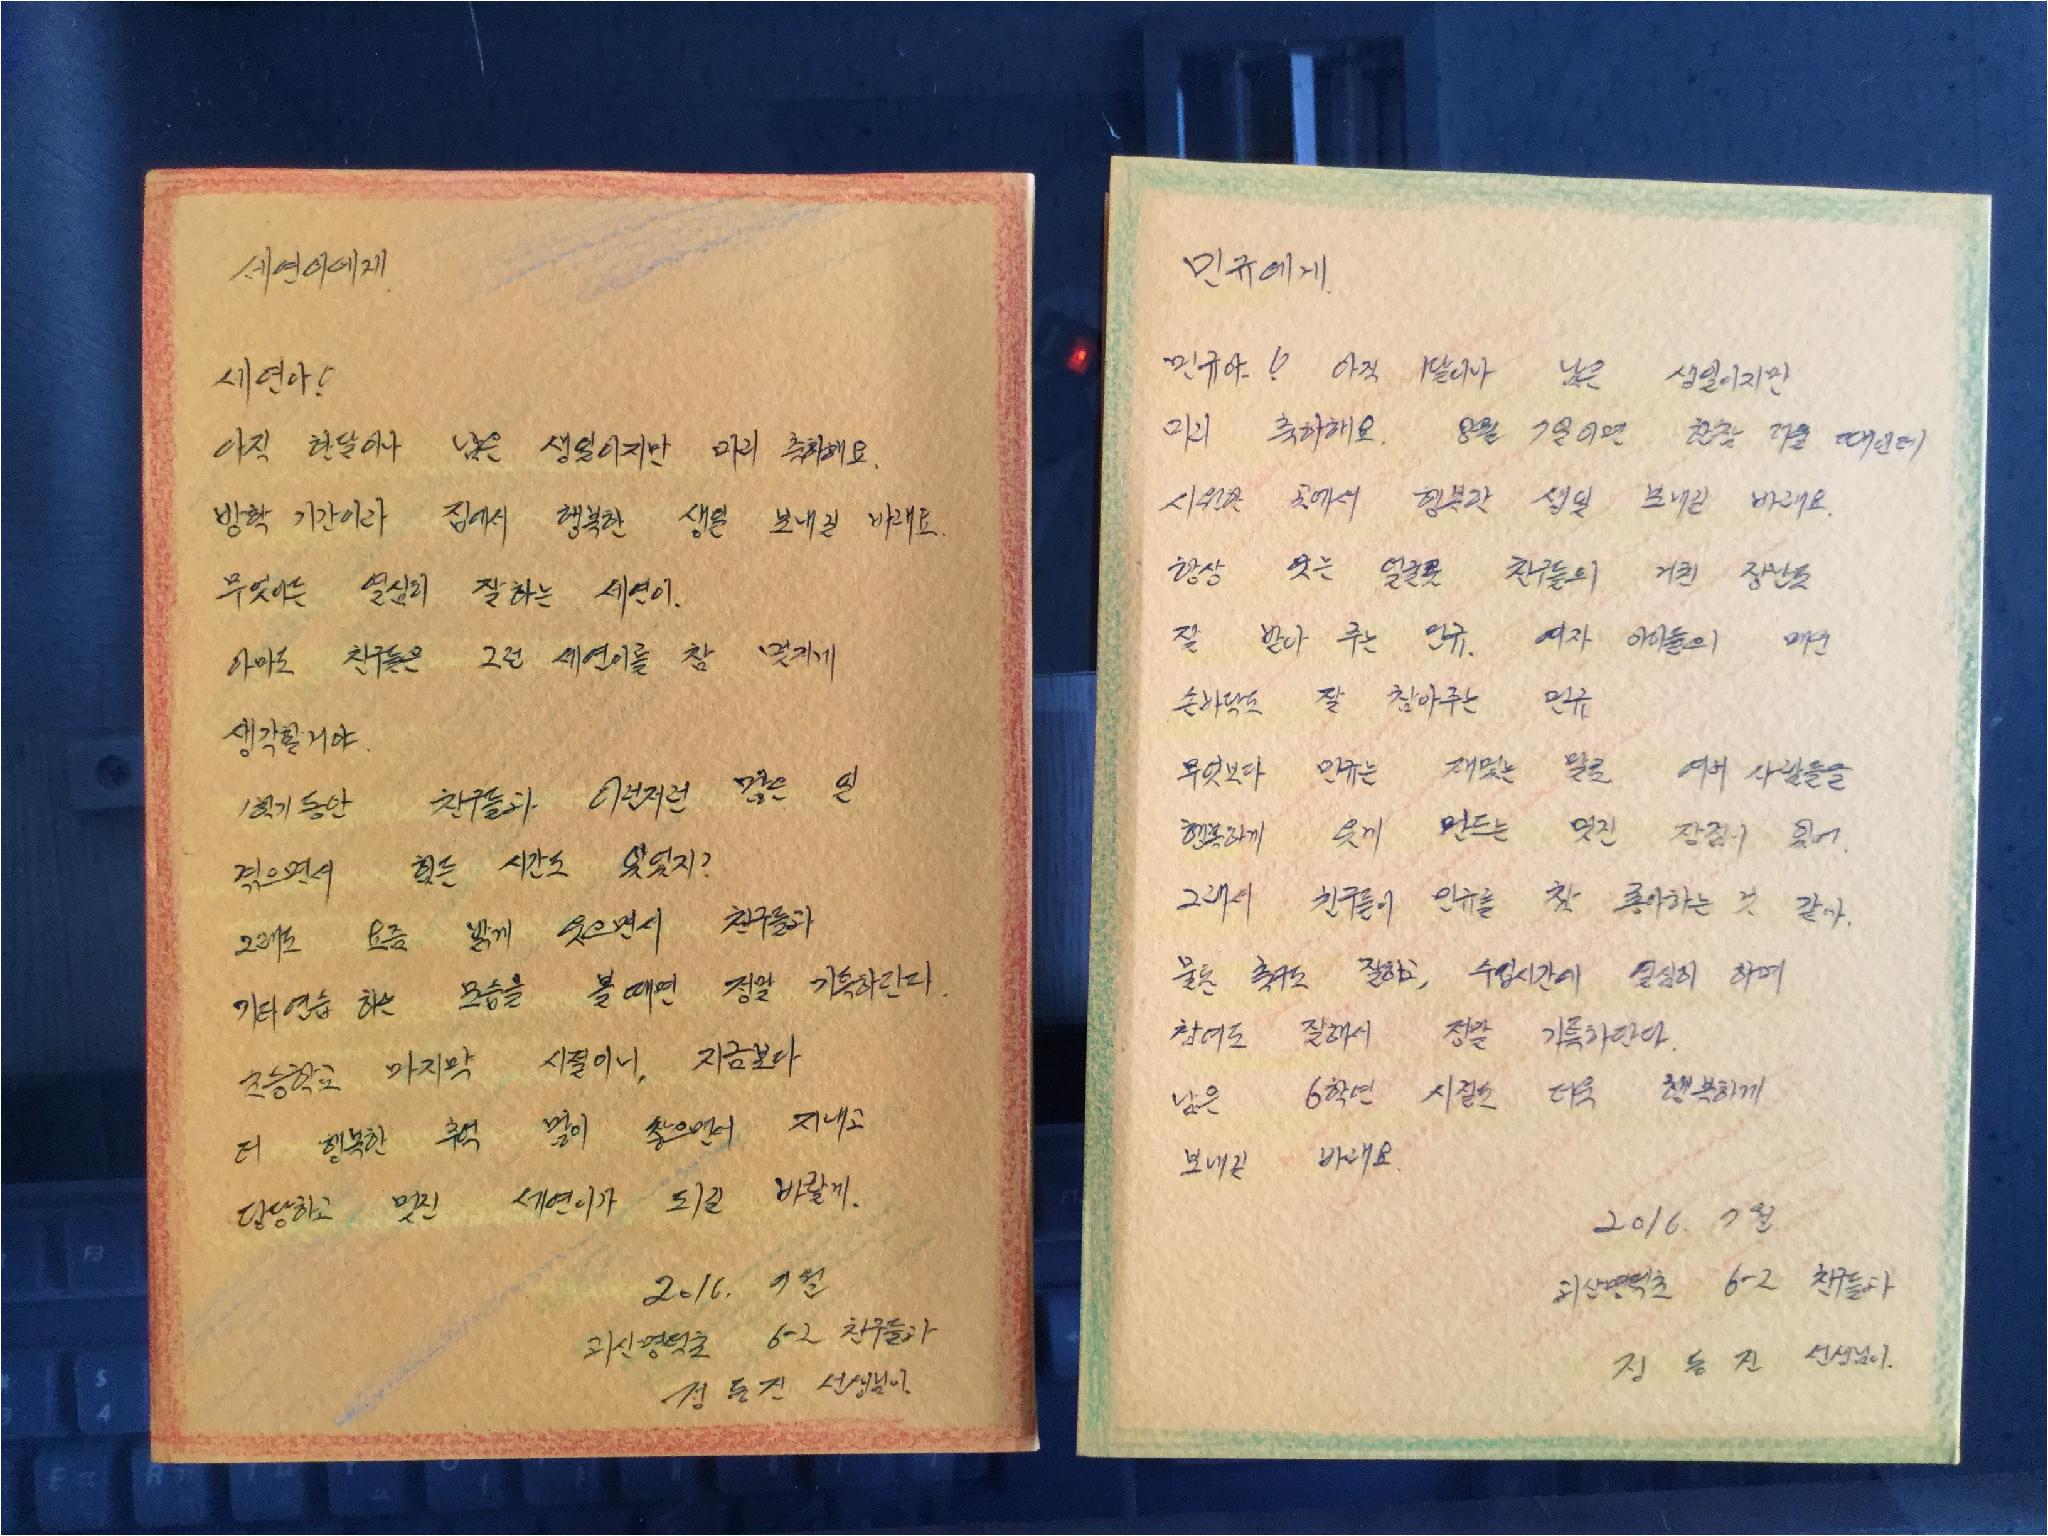 세연이에게.
세연아!
아직 한달이나 남은 생일이지만 미리 축하해요.
방학 기간이라 집에서 행복한 생일 보내길 바래요.
무엇이든 열심히 잘하는 세연이.
아마도 친구들은 그런 세연이를 참 멋지게
생각할거야.
1학기동안 친구들과 이런저런 많은 일
겪으면서 힘든 시간도 있었지?
그래도 요즘 밝게 웃으면서 친구들과
기타연습 하는 모습을 볼때면 정말 기특하단다.
초등학교 마지막 시절이니, 지금보다
더 행복한 추억 많이 쌓으면서 지내고
당당하고 멋진 세연이가 되길 바랄게.
2016. 7월
괴산명덕초 6-2 친구들과
정동진 선생님이.
민규에게.
민규야! 아직 1달이나 남은 생일이지만
미리 축하해요. 8월 7일이면 한참 더울 때인데
시원한 곳에서 행복한 생일 보내길 바래요.
항상 웃는 얼굴로 친구들의 거친 장난도
잘 받아 주는 민규. 여자 아이들의 매면
손바닥도 잘 참아주는 민규
무엇보다 민규는 재밌는 말로 여러 사람들을
행복하게 웃게 만드는 멋진 장점이 있어.
그래서 친구들이 민규를 참 좋아하는 것 같아.
물론 축구도 잘하고, 수업시간에 열심히 하며
참여도 잘해서 정말 기특하단다.
남은 6학년 시절도 더욱 행복하게
보내길 바래요.
2016. 7월
괴산명덕초 6-2 친구들과
정동진 선생님이.